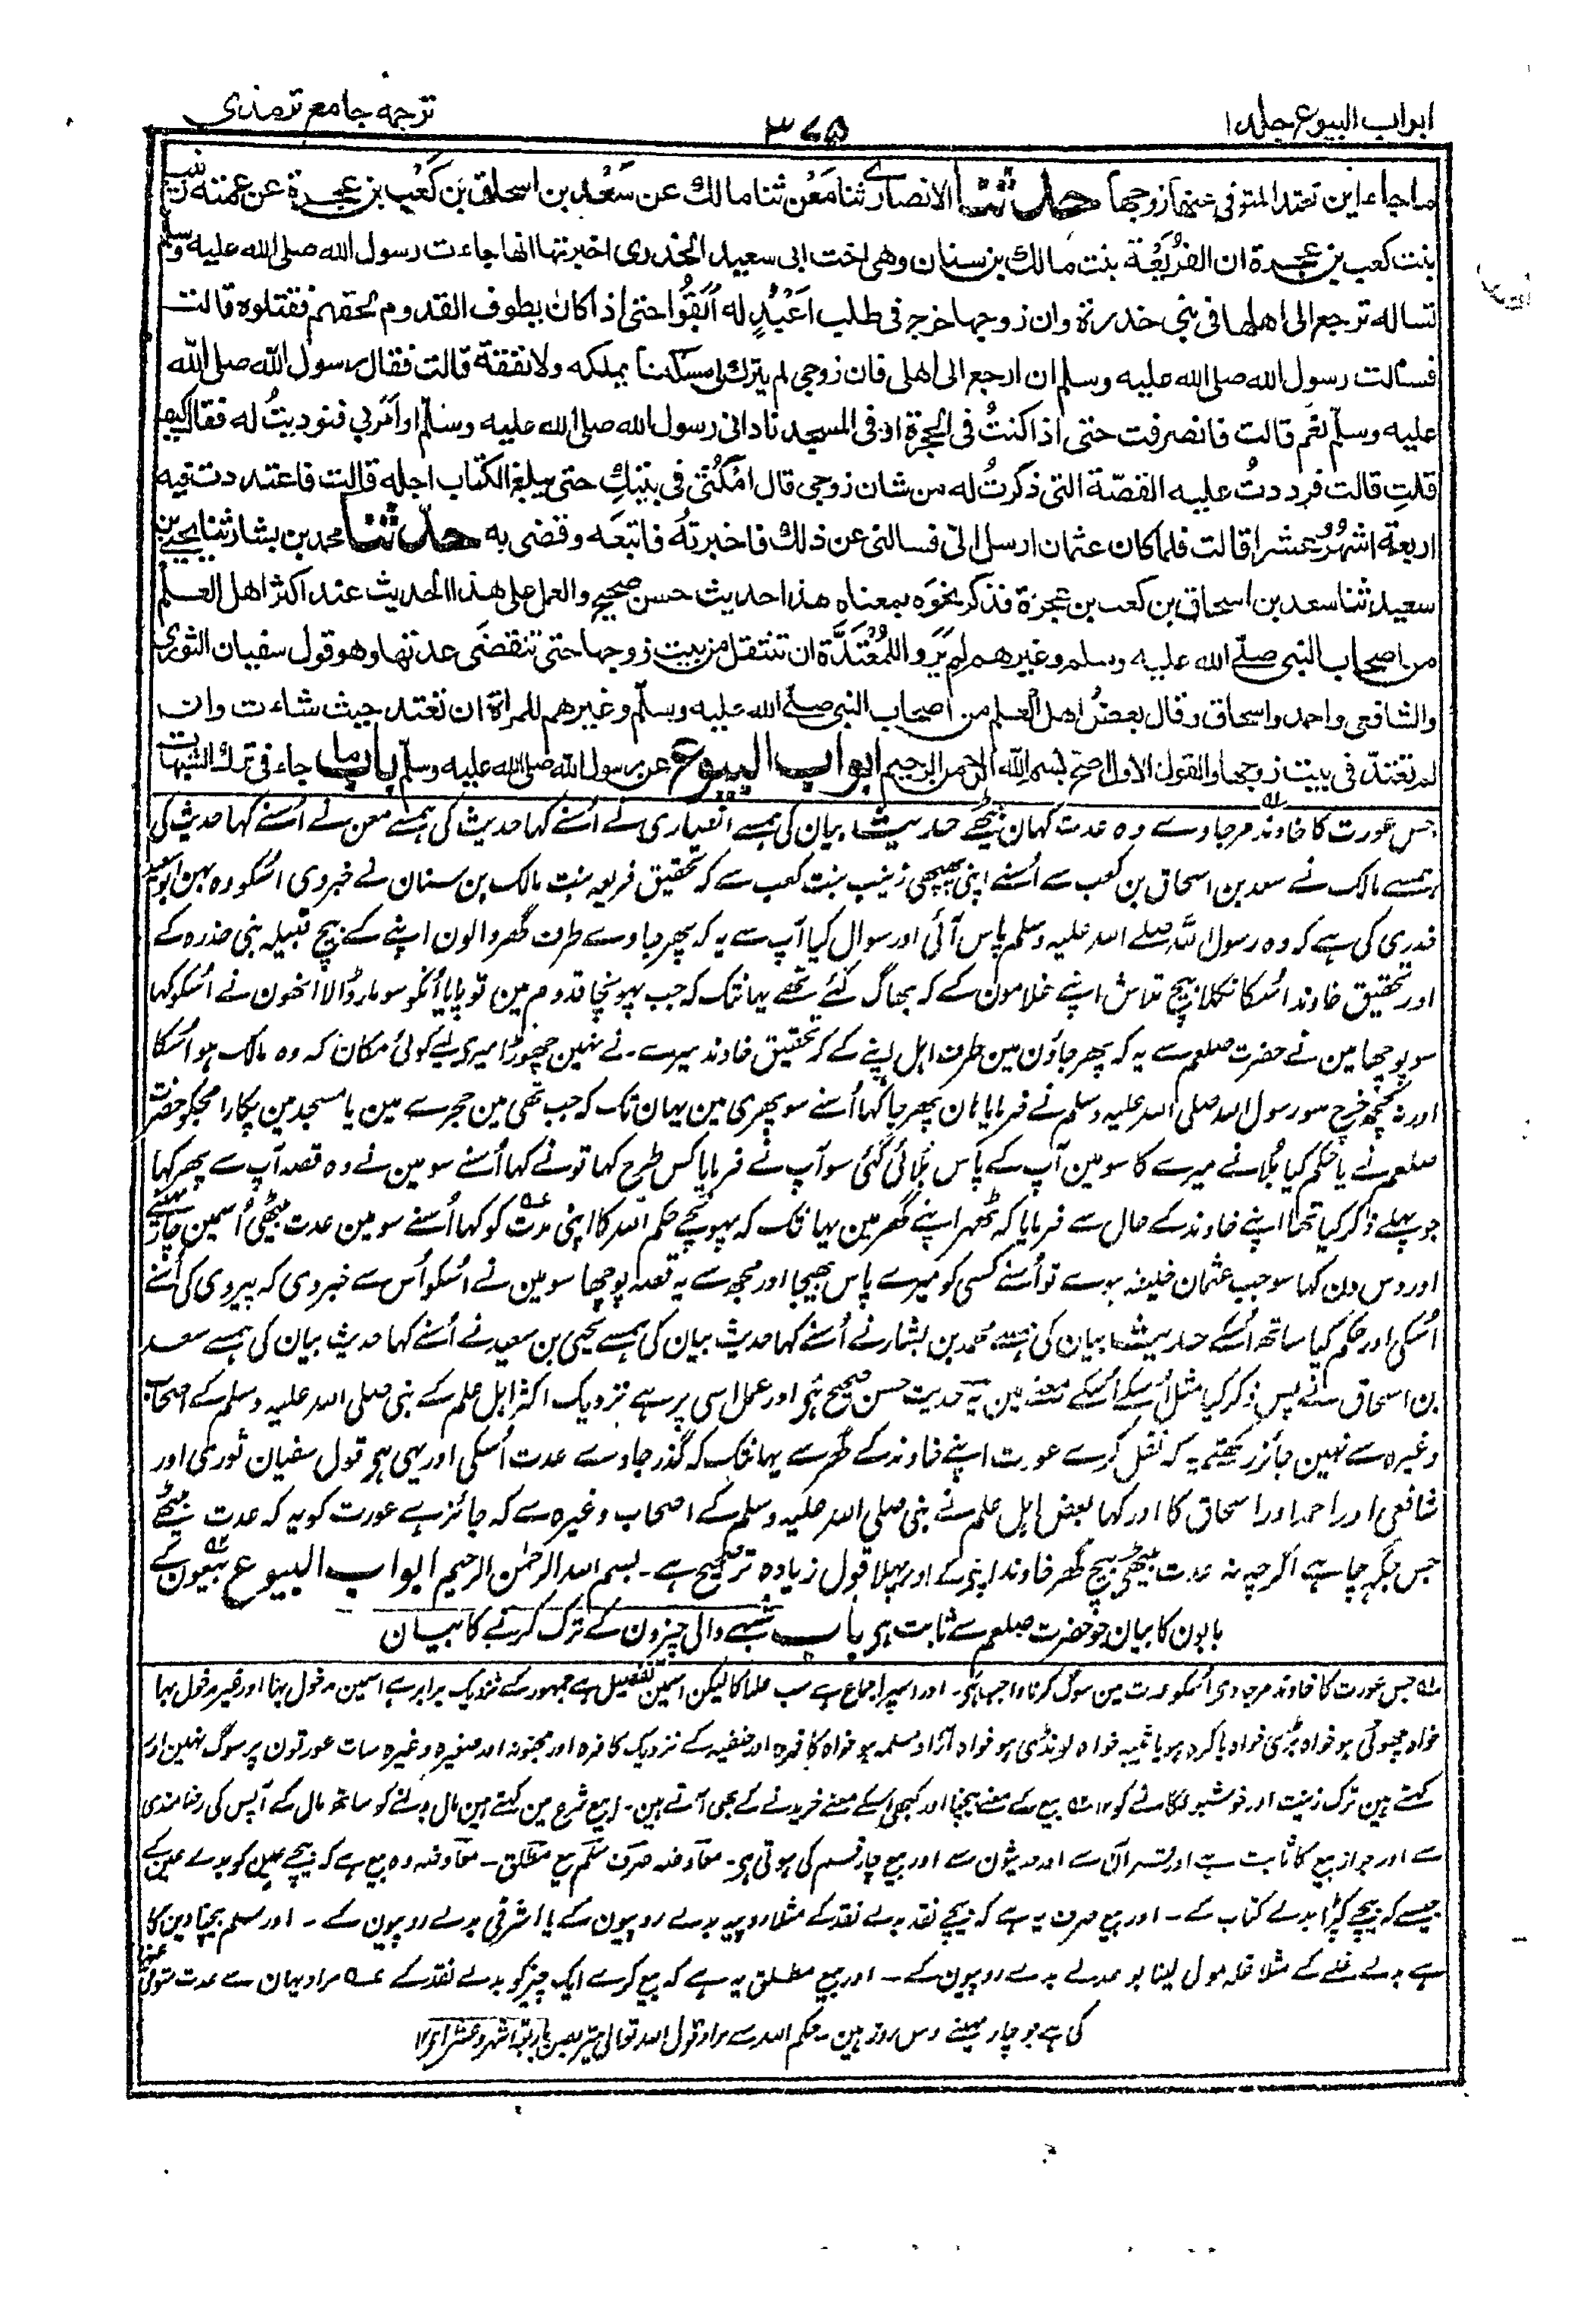 ابواب البیوع جلد ۱
۳۷۵
ترجمه جامع ترمذی
ما جاء این تعتد المتوفی عنها زوجها حدثنا الانصاری ثنا معن ثنا مالك عن سعد بن اسحاق بن كعب بن عجرة عن عمته زینب
بنت كعب بن عجرة ان الفُرَیْعَة بنت مالك بن سنان وهی اخت ابی سعید الخدری اخبرتها انها جاءت رسول الله صلی الله علیه وسلم
تساله ترجع الی اهلها فی بنی خدرة وان زوجها خرج فی طلب اَعْبُدٍ له اَبَقُوا حتی اذا كان بطرف القدوم لحقهم فقتلوه قالت
فسألت رسول الله صلی الله علیه وسلم ان ارجع الی اهلی فان زوجی لم یترك لی مسكنا یملكه ولا نفقة قالت فقال رسول الله صلی الله
علیه وسلم نعم قالت فانصرفت حتی اذا كنتُ فی الحجرة او فی المسجد نادانی رسول الله صلی الله علیه وسلم او اَمَر بی فنودیتُ له فقال كیف
قلتِ قالت فرددتُ علیه القصّة التی ذكرتُ له من شان زوجی قال امْكُثی فی بیتكِ حتی یبلغ الكتاب اجله قالت فاعتددت فیه
اربعة اشهُرٍ وعشرا قالت فلما كان عثمان ارسل الیّ فسالنی عن ذلك فاخبرته فاتبعه وقضی به حدثنا محمد بن بشار ثنا یحیی بن
سعید ثنا سعد بن اسحاق بن كعب بن عجرة فذكر نحوَه بمعناه هذا حدیث حسن صحیح والعمل علی هذا الحدیث عند اكثر اهل العلم
من اصحاب النبی صلی الله علیه وسلم وغیرهم لم یَرَوا للمُعْتَدَّة ان تنتقل من بیت زوجها حتی تنقضی عدتها وهو قول سفیان الثوری
والشافعی واحمد واسحاق وقال بعضُ اهل العلم من اصحاب النبی صلی الله علیه وسلم وغیرهم للمراة ان تعتد حیث شاءت وان
لم تعتدّ فی بیت زوجها والقول الاول اصح بسم الله الرحمن الرحیم ابواب البیوع عن رسول الله صلی الله علیه وسلم باب ما جاء فی ترك الشبهات
جس عورت کا خاوند مرجاوے وہ عدت کہان بیٹھے حدیث بیان کی ہمسے انصاری نے اُسنے کہا حدیث کی ہمسے معن نے اُسنے کہا حدیث کی
ہمسے مالک نے سعد بن اسحاق بن کعب سے اُسنے اپنی پھپھی زینب بنت کعب سے کہ تحقیق فریعہ بنت مالک بن سنان نے خبر دی اُسکو وہ بہن ابو سعید
خدری کی ہے کہ وہ رسول اللہ صلے اللہ علیہ وسلم پاس آئی اور سوال کیا آپ سے یہ کہ پھر جاوے طرف گھر والون اپنے کے بیچ قبیلہ بنی خدرہ کے
اور تحقیق خاوند اُسکا نکلا بیچ تلاش اپنے غلامون کے کہ بھاگ گئے تھے یہانتک کہ جب پہونچا قدوم مین تو پایا اُنکو سو مار ڈالا انھون نے اُسکو کہا
سو پوچھا مین نے حضرت صلعم سے یہ کہ پھر جاؤن مین طرف اہل اپنے کے کہ تحقیق خاوند میرے نے نہین چھوڑا میرے لیے کوئی مکان کہ وہ مالک ہو اُسکا
اور نہ کچھ خرچ سو رسول اللہ صلی اللہ علیہ وسلم نے فرمایا ہان پھر جا کہا اُسنے سو پھری مین یہان تک کہ جب تھی مین حجرے مین یا مسجد مین پکارا مجکو حضرت
صلعم نے یا حکم کیا بُلانے میرے کا سو مین آپ کے پاس بُلائی گئی سو آپ نے فرمایا کس طرح کہا تونے کہا اُسنے سو مین نے وہ قصہ آپ سے پھر کہا
جو پہلے ذکر کیا تھا اپنے خاوند کے حال سے فرمایا کہ ٹھہر اپنے گھر مین یہانتک کہ پہونچے حکم اللہ کا اپنی مدت کو کہا اُسنے سو مین عدت بیٹھی اُسمین چار مہینے
اور دس دن کہا سو جب عثمان خلیفہ ہوے تو اُسنے کسی کو میرے پاس بھیجا اور مجھ سے یہ قصہ پوچھا سو مین نے اُسکو اُس سے خبر دی کہ پیروی کی اُسنے
اُسکی اور حکم کیا ساتھ اُسکے حدیث بیان کی ہمسے محمد بن بشار نے اُسنے کہا حدیث بیان کی ہمسے یحیی بن سعید نے اُسنے کہا حدیث بیان کی ہمسے سعد
بن اسحاق نے پس ذکر کیا مثل اُسکے اُسکے معنے مین یہ حدیث حسن صحیح ہی اور عمل اسی پر ہے نزدیک اکثر اہل علم کے نبی صلی اللہ علیہ وسلم کے اصحاب
وغیرہ سے نہین جائز رکھتے یہ کہ نقل کرے عورت اپنے خاوند کے گھر سے یہانتک کہ گذر جاوے عدت اُسکی اور یہی ہی قول سفیان ثوری اور
شافعی اور احمد اور اسحاق کا اور کہا بعض اہل علم نے نبی صلی اللہ علیہ وسلم کے اصحاب وغیرہ سے کہ جائز ہے عورت کو یہ کہ عدت بیٹھے
جس جگہ چاہے اگرچہ نہ عدت بیٹھی بیچ گھر خاوند اپنے کے اور پہلا قول زیادہ تر صحیح ہے۔ بسم اللہ الرحمٰن الرحیم ابواب البیوع بیعون کے
بابون کا بیان جو حضرت صلعم سے ثابت ہی باب شبہے والی چیزون کے ترک کرنے کا بیان
جس عورت کا خاوند مرجاوی اُسکو عدت مین سوگ کرنا واجب ہی۔ اور اسپر اجماع ہے سب علما کا لیکن اسمین تفصیل ہے جمہور کے نزدیک برابر ہے اسمین مدخول بہا اور غیر مدخول بہا
خواہ چھوٹی ہو خواہ بڑی خواہ باکرہ ہو یا ثیبہ خواہ لونڈی ہو خواہ آزاد مسلمہ ہو خواہ کافرہ اور حنفیہ کے نزدیک کافرہ اور مجنونہ اور صغیرہ وغیرہ سات عورتون پر سوگ نہین اور
کہتے ہین ترک زینت اور خوشبو لگانے کو ۱۲ بیع کے معنے بیچنا اور کبھی اُسکے معنے خریدنے کے بھی آتے ہین۔ اور بیع شرع مین کہتے ہین مال بدلنے کو ساتھ مال کے آپس کی رضامندی
سے اور جواز بیع کا ثابت ہے اور قرآن سے اور حدیثون سے اور بیع چار قسم کی ہوتی ہی۔ معاوضہ صرف سلم بیع مطلق۔ معاوضہ وہ بیع ہے کہ بیچے عین کو بدلے عین کے
جیسے کہ بیچے کپڑا بدلے کتاب کے۔ اور بیع صرف یہ ہے کہ بیچے نقد بدلے نقد کے مثلا روپیہ بدلے روپیون کے یا اشرفی بدلے روپیون کے۔ اور سلم بیچنا دین کا
ہے بدلے عین کے مثلا غلہ مول لینا بدلے روپیون کے۔ اور بیع مطلق یہ ہے کہ بیع کرے ایک چیز کو بدلے نقد کے مراد یہان سے عدت متوفی عنہا
کی ہے جو چار مہینے دس روز ہین۔ حکم اللہ سے مراد قول اللہ تعالی یتربصن باربعة اشهر وعشرا